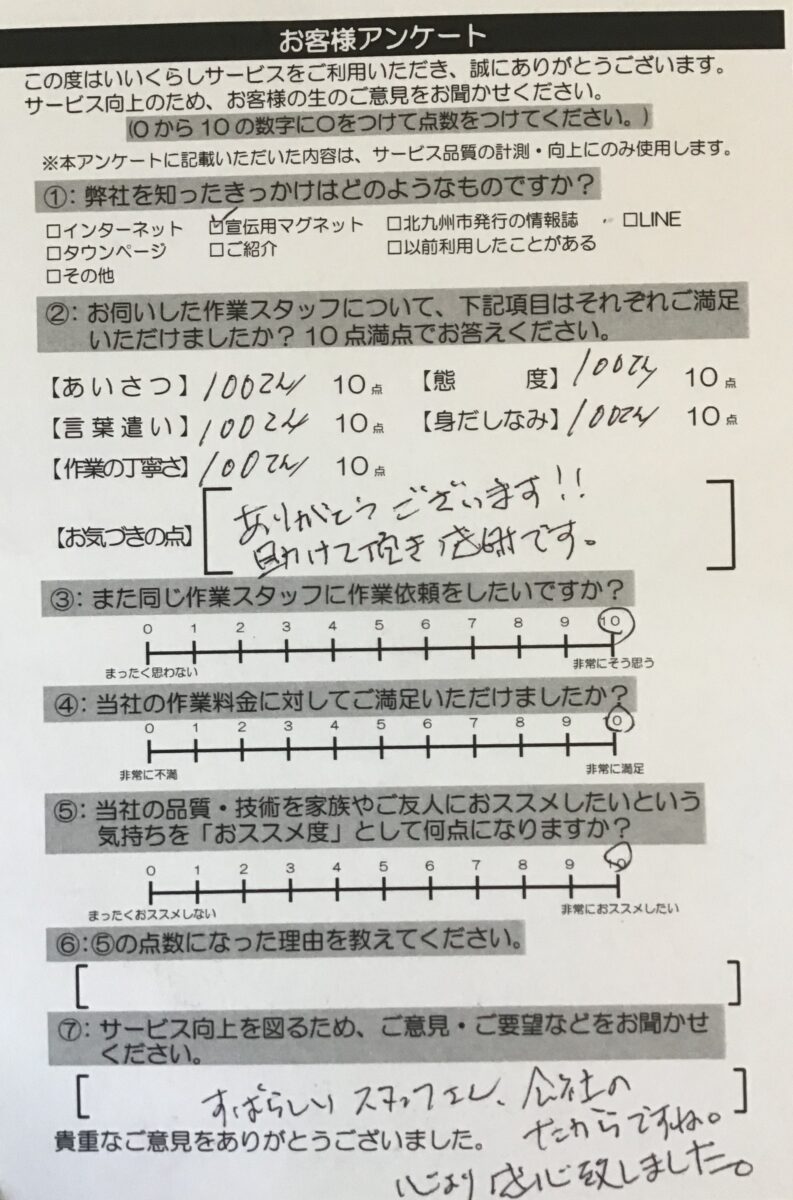 お客様アンケート
この度はいいくらしサービスをご利用いただき、誠にありがとうございます。
サービス向上のため、お客様の生のご意見をお聞かせください。
(0から10の数字に〇をつけて点数をつけてください。)
※本アンケートに記載いただいた内容は、サービス品質の計測・向上にのみ使用します。
①：弊社を知ったきっかけはどのようなものですか？
□インターネット ☑宣伝用マグネット □北九州市発行の情報誌 □LINE
□タウンページ □ご紹介 □以前利用したことがある
□その他
②：お伺いした作業スタッフについて、下記項目はそれぞれご満足
いただけましたか？10点満点でお答えください。
【あいさつ】100てん 10点 【態度】100てん 10点
【言葉遣い】100てん 10点 【身だしなみ】100てん 10点
【作業の丁寧さ】100てん 10点
ありがとうございます!!
【お気づきの点】
助けて頂き感謝です。
③：また同じ作業スタッフに作業依頼をしたいですか？
0 1 2 3 4 5 6 7 8 9 10
まったく思わない 非常にそう思う
④：当社の作業料金に対してご満足いただけましたか？
0 1 2 3 4 5 6 7 8 9 10
非常に不満 非常に満足
⑤：当社の品質・技術を家族やご友人におススメしたいという
気持ちを「おススメ度」として何点になりますか？
0 1 2 3 4 5 6 7 8 9 10
まったくおススメしない 非常におススメしたい
⑥：⑤の点数になった理由を教えてください。
⑦：サービス向上を図るため、ご意見・ご要望などをお聞かせ
ください。
すばらしいスタッフさん、会社の
たからですね。
貴重なご意見をありがとうございました。
心より感心致しました。